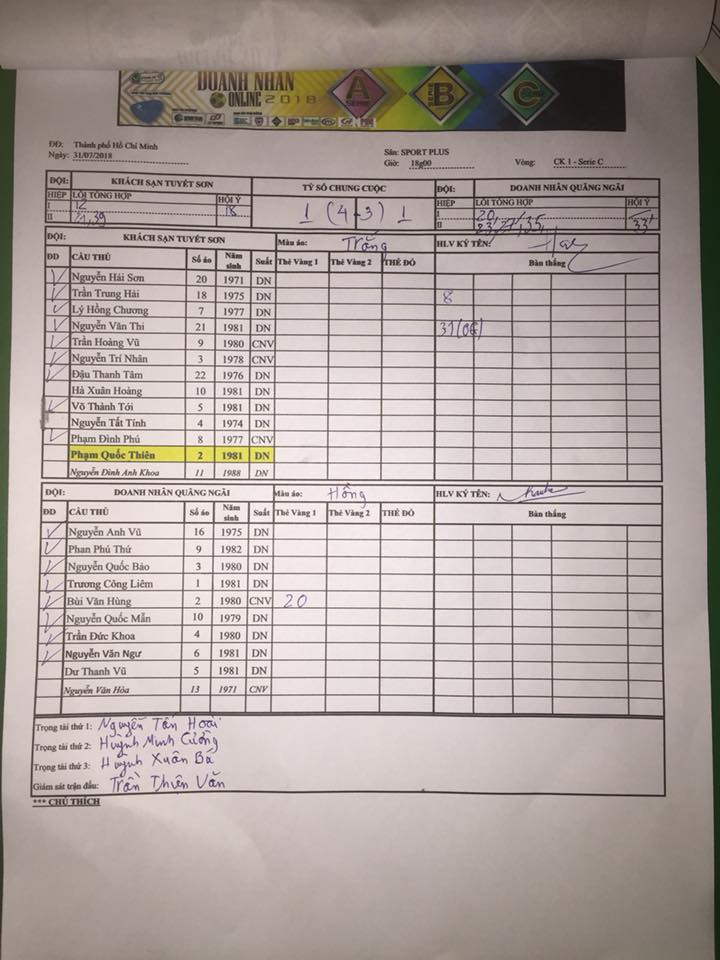 DOANH NHÂN
ONLINE 2018
A
SERIE
B
SERIE
C
ĐĐ: Thành phố Hồ Chí Minh
Ngày: 31/07/2018
Sân: SPORT PLUS
Giờ: 18g00 Vòng: CK 1 - Serie C
ĐỘI: KHÁCH SẠN TUYẾT SƠN TỶ SỐ CHUNG CUỘC ĐỘI: DOANH NHÂN QUÃNG NGÃI
HIỆP LỖI TỔNG HỢP HỘI Ý 1 (4-3) 1 HIỆP LỖI TỔNG HỢP HỘI Ý
I 12 18 I 20
II 39 II 23, 27, 35, 33
ĐỘI: KHÁCH SẠN TUYẾT SƠN Màu áo: Trắng HLV KÝ TÊN:
ĐD CẦU THỦ Số áo Năm sinh Suất Thẻ Vàng 1 Thẻ Vàng 2 THẺ ĐỎ Bàn thắng
Nguyễn Hải Sơn 20 1971 DN
Trần Trung Hải 18 1975 DN 8
Lý Hồng Chương 7 1977 DN
Nguyễn Văn Thi 21 1981 DN 31(OG)
Trần Hoàng Vũ 9 1980 CNV
Nguyễn Trí Nhân 3 1978 CNV
Đậu Thanh Tâm 22 1976 DN
Hà Xuân Hoàng 10 1981 DN
Võ Thành Tới 5 1981 DN
Nguyễn Tất Tính 4 1974 DN
Phạm Đình Phú 8 1977 CNV
Phạm Quốc Thiên 2 1981 DN
Nguyễn Đình Anh Khoa 11 1988 DN
ĐỘI: DOANH NHÂN QUÃNG NGÃI Màu áo: Hồng HLV KÝ TÊN:
ĐD CẦU THỦ Số áo Năm sinh Suất Thẻ Vàng 1 Thẻ Vàng 2 THẺ ĐỎ Bàn thắng
Nguyễn Anh Vũ 16 1975 DN
Phan Phú Thứ 9 1982 DN
Nguyễn Quốc Bảo 3 1980 DN
Trương Công Liêm 1 1981 DN
Bùi Văn Hùng 2 1980 CNV 20
Nguyễn Quốc Mẫn 10 1979 DN
Trần Đức Khoa 4 1980 DN
Nguyễn Văn Ngư 6 1981 DN
Dư Thanh Vũ 5 1981 DN
Nguyễn Văn Hòa 13 1971 CNV
Trọng tài thứ 1: Nguyễn Tấn Hoài
Trọng tài thứ 2: Huỳnh Minh Cường
Trọng tài thứ 3: Huỳnh Xuân Bá
Giám sát trận đấu: Trần Thiện Văn
*** CHÚ THÍCH